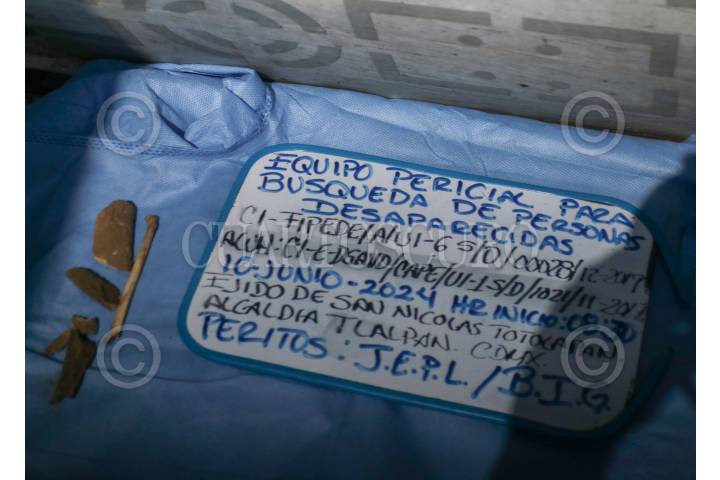 EQUIPO PERICIAL PARA
BUSQUEDA DE PERSONAS
DESAPARECIDAS
CI-FIPEDE/A/UI-6 S/D/00028/12-2019
ACUM: CI-E-DGAVD/CAPE/UI-1-S/D/1021/11-2018
10-JUNIO-2024 HR INICIO:
EJIDO DE SAN NICOLAS TOTOLAPAN
ALCALDIA TLALPAN. CDMX.
PERITOS: J.E.P.L./B.I.G.
CUARTOSCURO
©
©
©
©